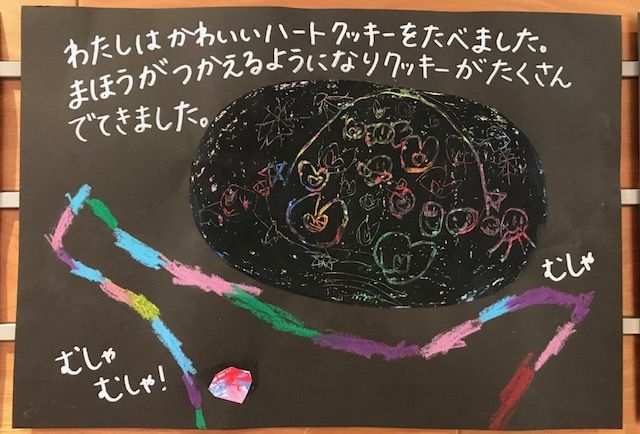 わたしは かわいいハートクッキーをたべました。
まほうが つかえるようになりクッキーが たくさん
でてきました。
むしゃ
むしゃ
むしゃ!